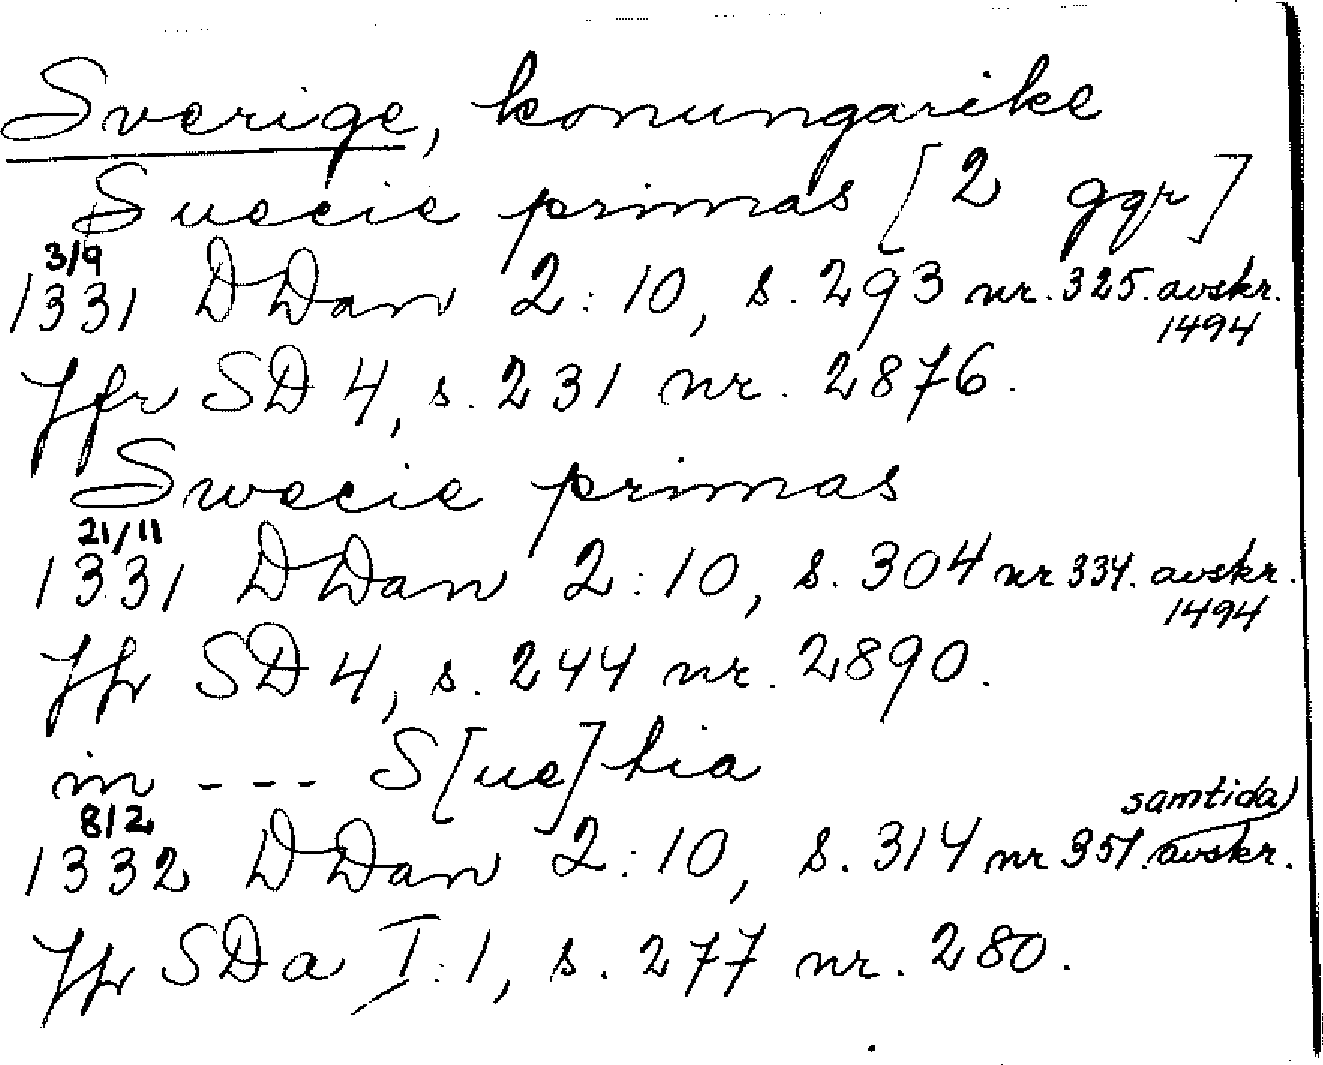 Sverige, konungarike
Suecie primas [2 ggr]
3/9
1331 DDan 2:10, s. 293 nr. 325. avskr.
1494
Jfr SD 4, s. 231 nr. 2876.
Swecie primas
21/11
1331 DDan 2:10, s. 304 nr 334. avskr.
1494
Jfr SD 4, s. 244 nr. 2890.
in --- S[ue]tia
samtida
8/2
1332 DDan 2:10, s. 314 nr 351. avskr.
Jfr SDa I:1, s. 277 nr. 280.